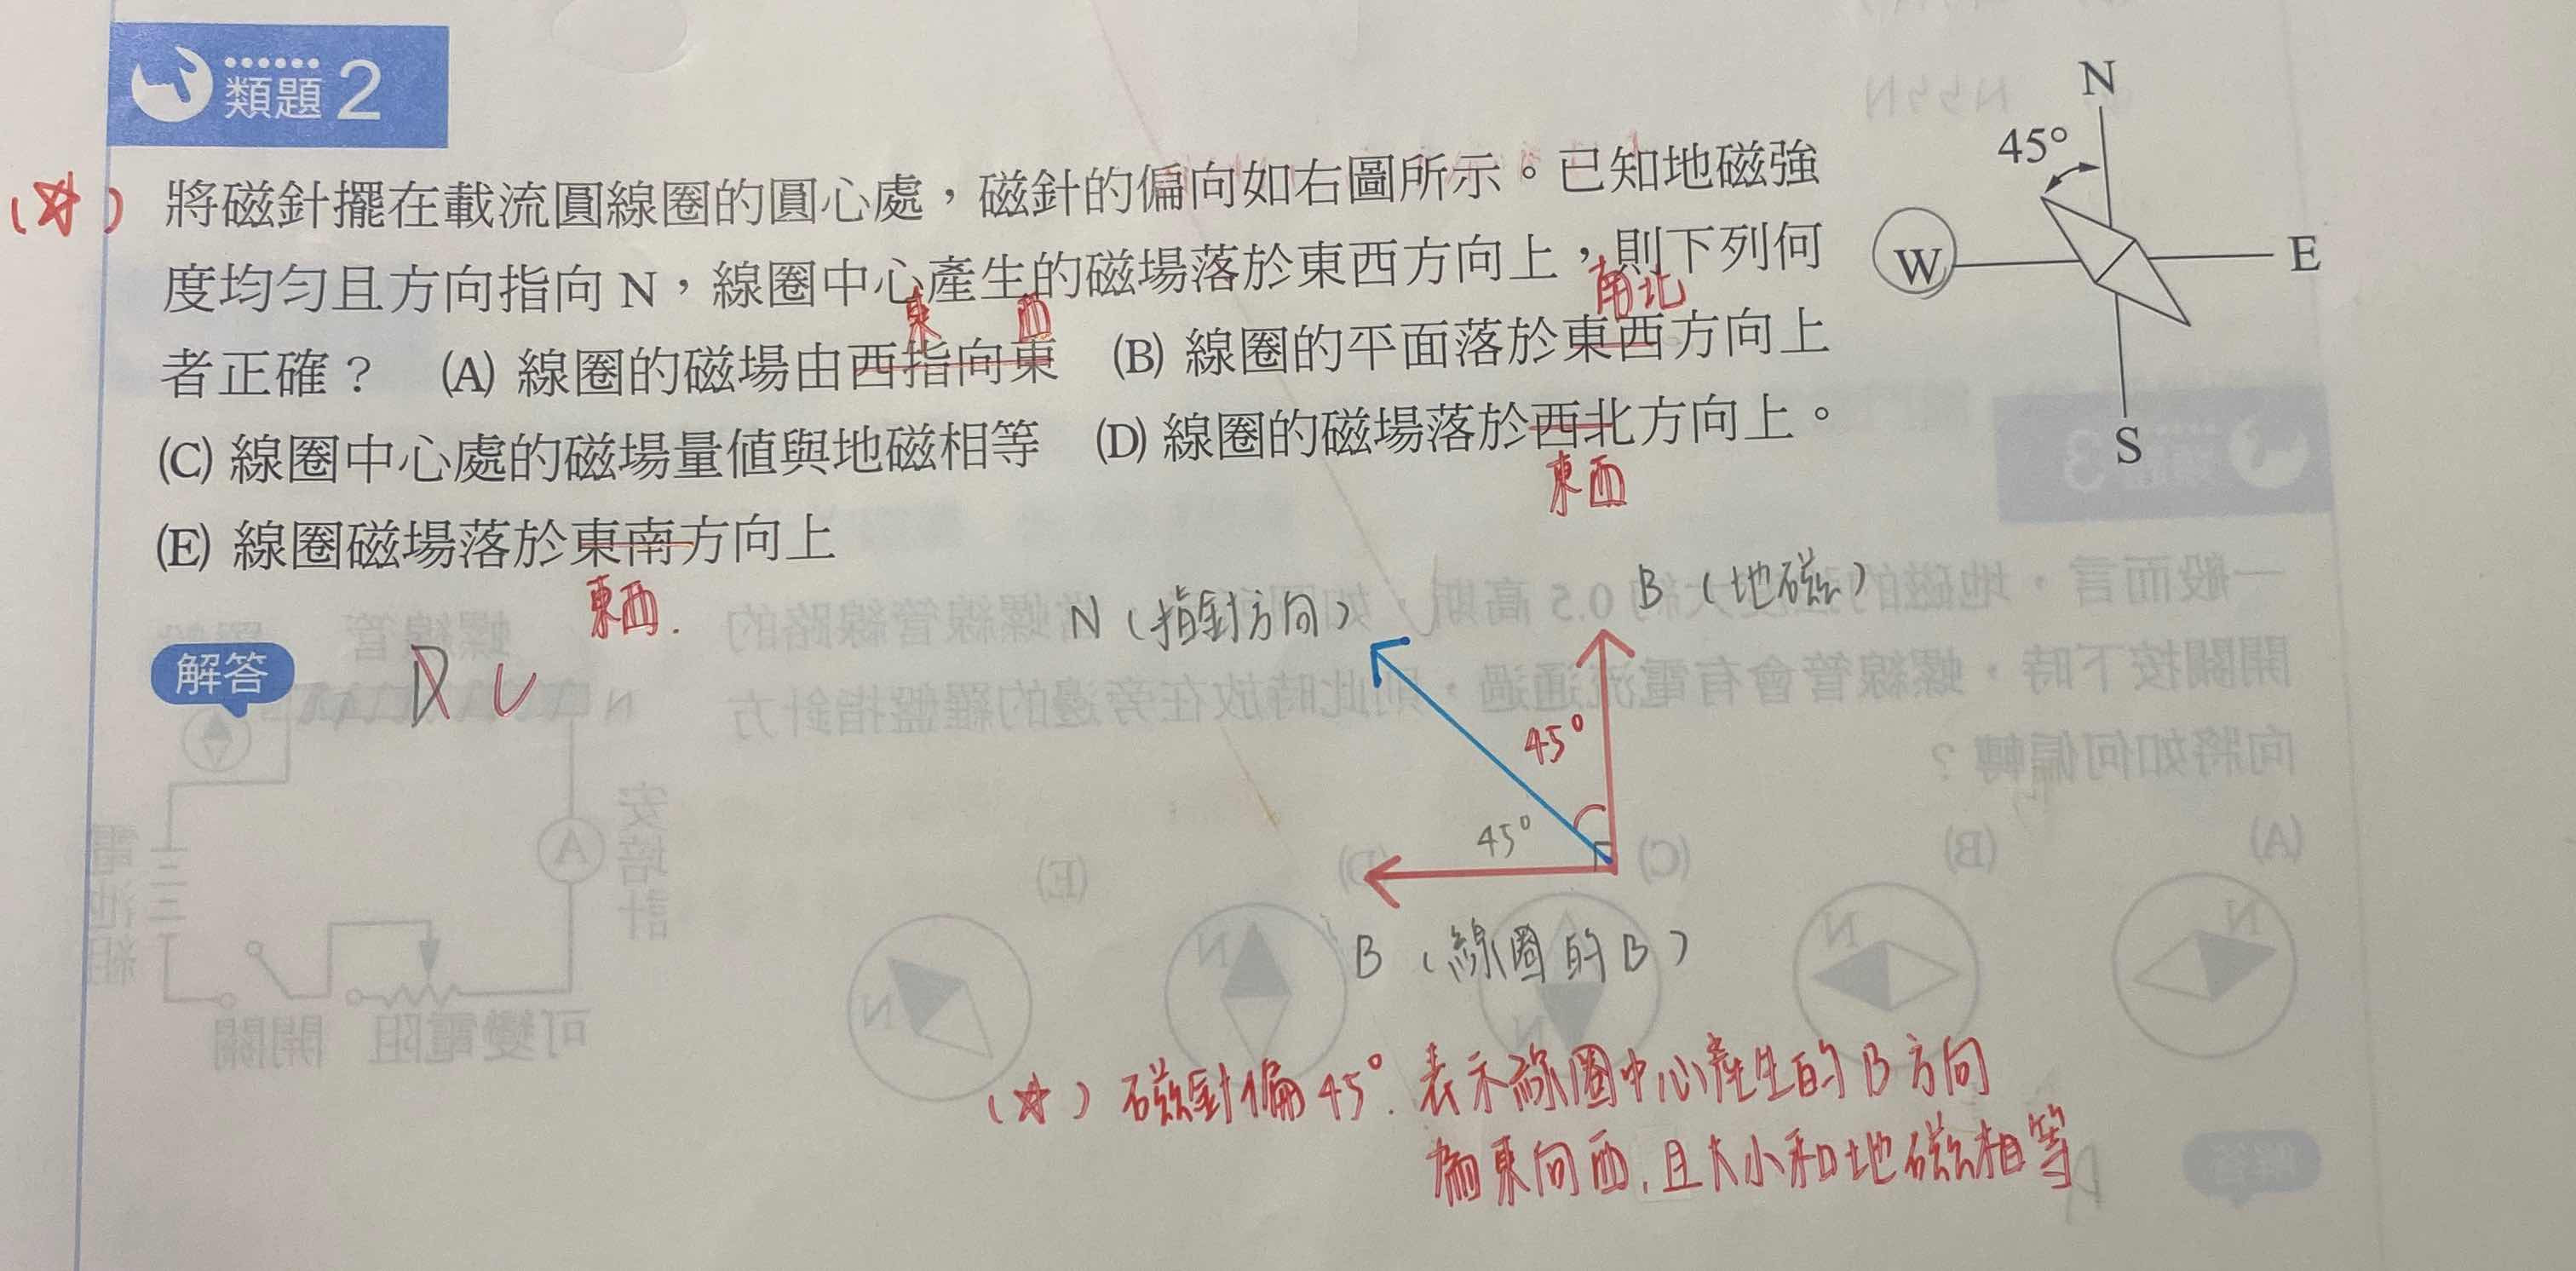 類題2
N
45°
W
E
S
(☆) 將磁針擺在載流圓線圈的圓心處，磁針的偏向如右圖所示。已知地磁強
度均勻且方向指向 N，線圈中心產生的磁場落於東西方向上，則下列何
東 西
南北
者正確？ (A) 線圈的磁場由西指向東 (B) 線圈的平面落於東西方向上
(C) 線圈中心處的磁場量值與地磁相等 (D) 線圈的磁場落於西北方向上。
東西
(E) 線圈磁場落於東南方向上
東西.
解答 D C
N (指針方向)
B (地磁)
45°
45°
B (線圈的B)
(☆) 磁針偏45°. 表示線圈中心產生的B方向
東向西, 且大小和地磁相等